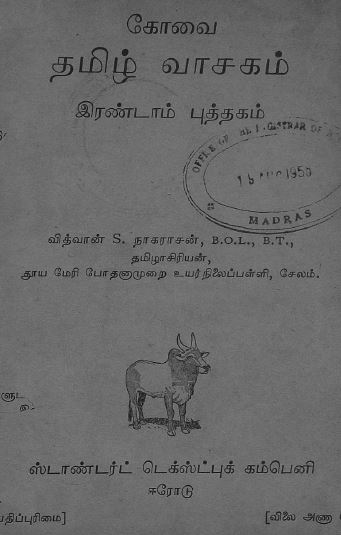 கோவை
தமிழ் வாசகம்
இரண்டாம் புத்தகம்
OFFICE OF THE REGISTRAR OF
1950
MADRAS
வித்வான் S. நாகராசன், B.O.L., B.T.,
தமிழாசிரியன்,
தூய மேரி போதனாமுறை உயர்நிலைப்பள்ளி, சேலம்.
ஸ்டாண்டர்ட் டெக்ஸ்ட்புக் கம்பெனி
ஈரோடு
பதிப்புரிமை]
[விலை அணா